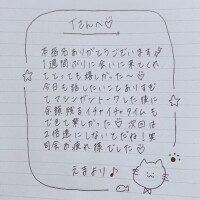 Tさんへ♡
本指名ありがとうございます
1週間ぶりに会いに来てくれ
てとっても嬉しかった〜♡
今日も話したいことありすぎ
てマシンガントークした後に
余韻残るイチャイチャタイムも
できて楽しかった♡ 次回は
2倍速にしないとだね!笑
お疲れ様でした
えまより♪